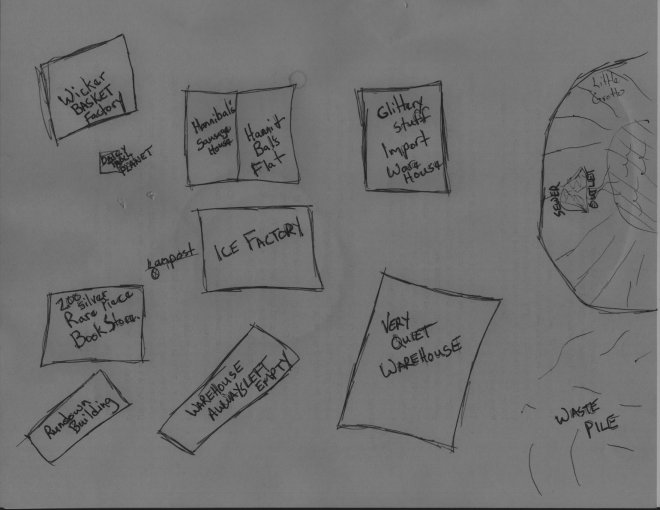 Wicker
BASKET
Factory
DAILY
PLANET
Hannibal's
Sausage
House
Hanni
Bal's
Flat
Glittery
Stuff
Import
Ware
House
Little
Grotto
SEWER
OUTLET
lampost
ICE FACTORY
200 Silver
Rare Piece
Book Store.
VERY
QUIET
WAREHOUSE
WAREHOUSE
ALWAYS LEFT
EMPTY
Rundown
Building
WASTE
PILE